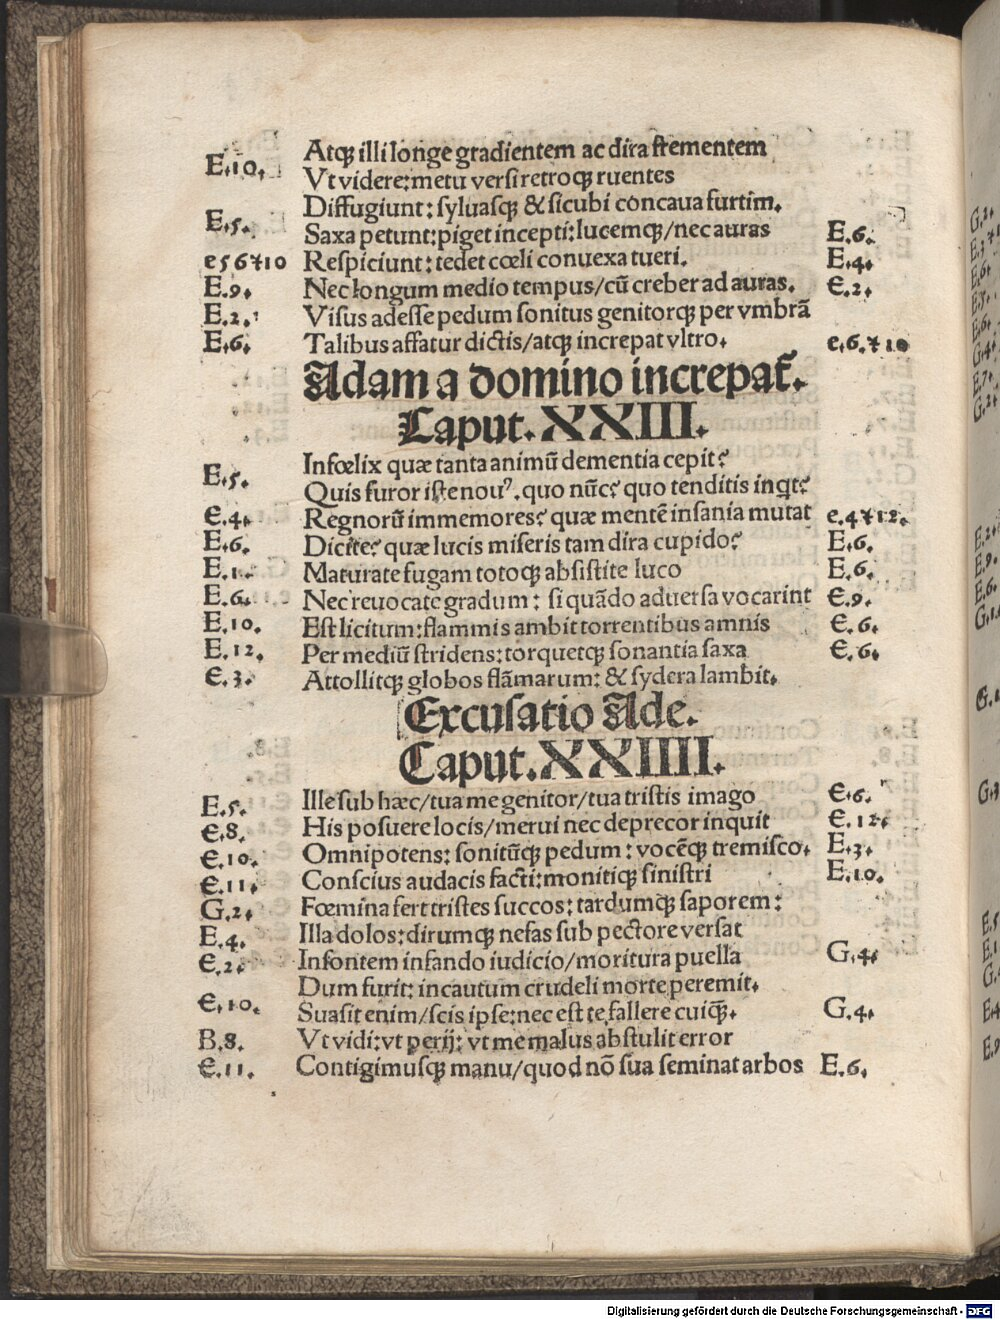 E.10. Atqꝫ illi longe gradientem ac dira frementem
Vt videre: metu versi retroqꝫ ruentes
E.5. Diffugiunt: syluasqꝫ & sicubi concaua furtim.
Saxa petunt: piget incepti: lucemqꝫ/nec auras E.6.
e 5 6 ⁊ 10 Respiciunt: tedet cœli conuexa tueri. E.4.
E.9. Nec longum medio tempus/cū creber ad auras. E.2.
E.2. Visus adesse pedum sonitus genitorqꝫ per vmbrā
E.6. Talibus affatur dictis/atqꝫ increpat vltro. e.6.⁊ 10
Adam a domino increpat̃.
Caput. XXIII.
E.5. Infœlix quæ tanta animū dementia cepit?
Quis furor iste nouꝰ. quo nūc? quo tenditis inqt?
E.4. Regnorū immemores? quæ mentē insania mutat e.4 ⁊ 12.
E.6. Dicite? quæ lucis miseris tam dira cupido? E.6.
E.1. Maturate fugam totoqꝫ absistite luco E.6.
E.6. Nec reuocate gradum: si quādo aduersa vocarint E.9.
E.10. Est licitum: flammis ambit torrentibus amnis E.6.
E.12. Per mediū stridens: torquetqꝫ sonantia saxa E.6.
E.3. Attollitqꝫ globos flāmarum: & sydera lambit.
Excusatio Ade.
Caput. XXIIII.
E.5. Ille sub hæc/tua me genitor/tua tristis imago E.6.
E.8. His posuere locis/merui nec deprecor inquit E.12.
E.10. Omnipotens: sonitūqꝫ pedum: vocēqꝫ tremisco. E.3.
E.11. Conscius audacis facti: monitiqꝫ sinistri E.10.
G.2. Fœmina fert tristes succos: tardumqꝫ saporem:
E.4. Illa dolos: dirumqꝫ nefas sub pectore versat
E.2. Insontem infando iudicio/moritura puella G.4.
Dum furit: incautum crudeli morte peremit.
E.10. Suasit enim/scis ipse: nec est te fallere cuiqꝫ. G.4.
B.8. Vt vidi: vt perij: vt me malus abstulit error
E.11. Contigimusqꝫ manu/quod nō sua seminat arbos E.6.
Digitalisierung gefördert durch die Deutsche Forschungsgemeinschaft - DFG